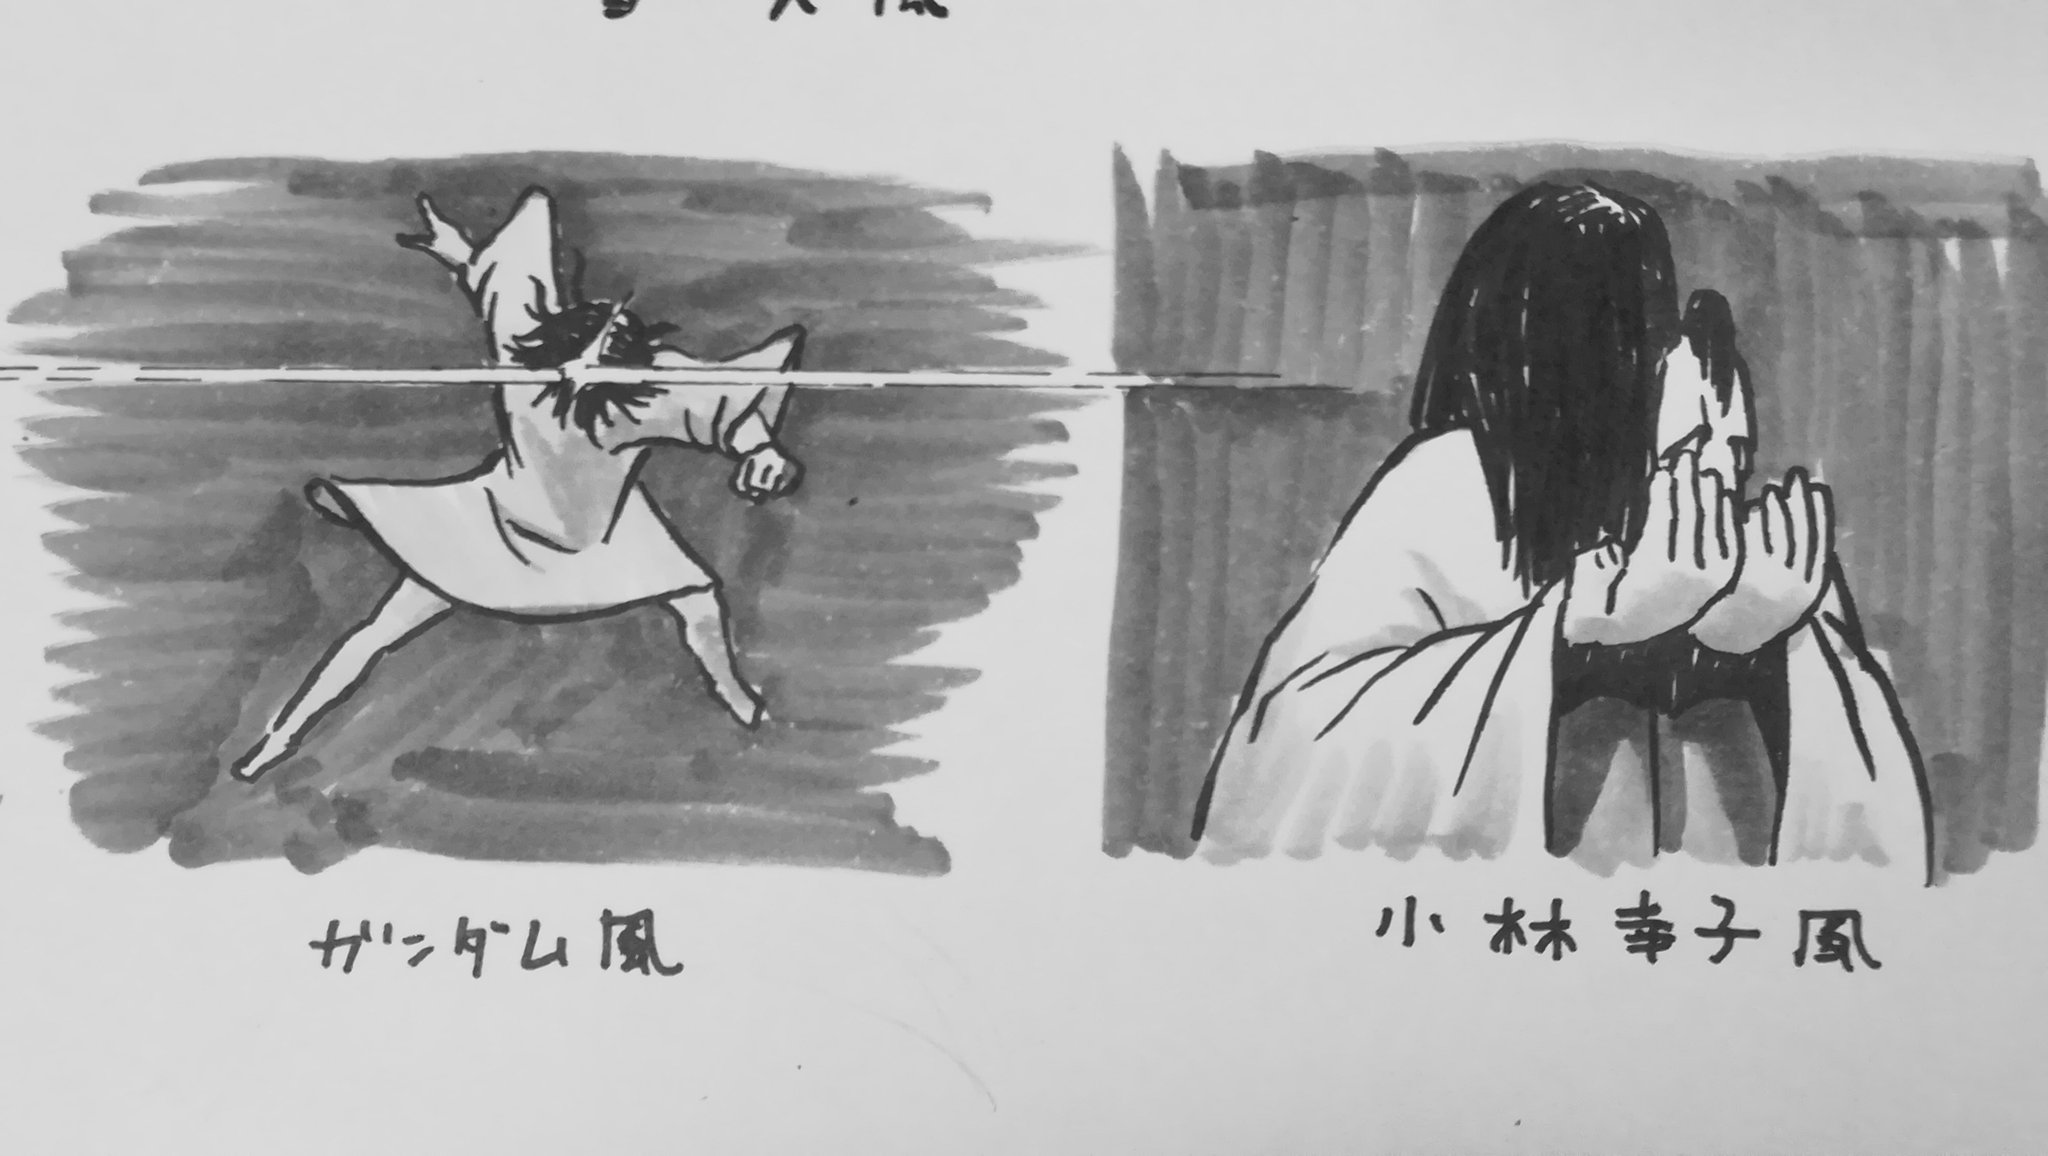 ガンダム風
小林幸子風